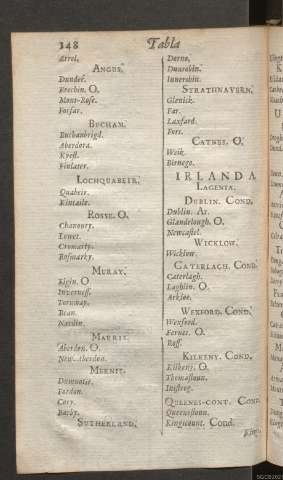 148 Tabla
Arrol.
ANGUS.
Dundee.
Brechin. O.
Mont-Rose.
Forfar.
BUCHAM.
Buchanbrigd.
Aberdora.
Kyest.
Finlater.
LOCHQUABEIR.
Quabeir.
Kintaile.
ROSSE. O.
Chanoury.
Lowet.
Cromarty.
Rosmarky.
MURAY.
Elgin. O
Inverness.
Tornway.
Bean.
Nardin.
MARRIS.
Aberden. O.
New-Aberdon.
MERNIS.
Dunnotir.
Fordon.
Cory.
Barby.
SUTHERLAND.
Derno.
Dunrobin.
Innerobin.
STRATHNAVERN.
Glenick.
Far.
Laxfard.
Fors.
CATNES. O.
Weik.
Birnego.
IRLANDA
LAGENIA.
DUBLIN. COND.
Dublin. Ar.
Glandelough. O.
Newcastel.
WICKLOW.
Wicklow.
CATERLAGH. COND.
Caterlagh.
Laghlin. O.
Arkloe.
WEXFORD. COND.
Wexford.
Fernes. O.
Ross.
KILKENY. COND.
Kilkeny. O.
Thomastoun.
Inistrog.
QUEENES-CONT. COND.
Queenstoun.
Kingscount. Cond.
Kings